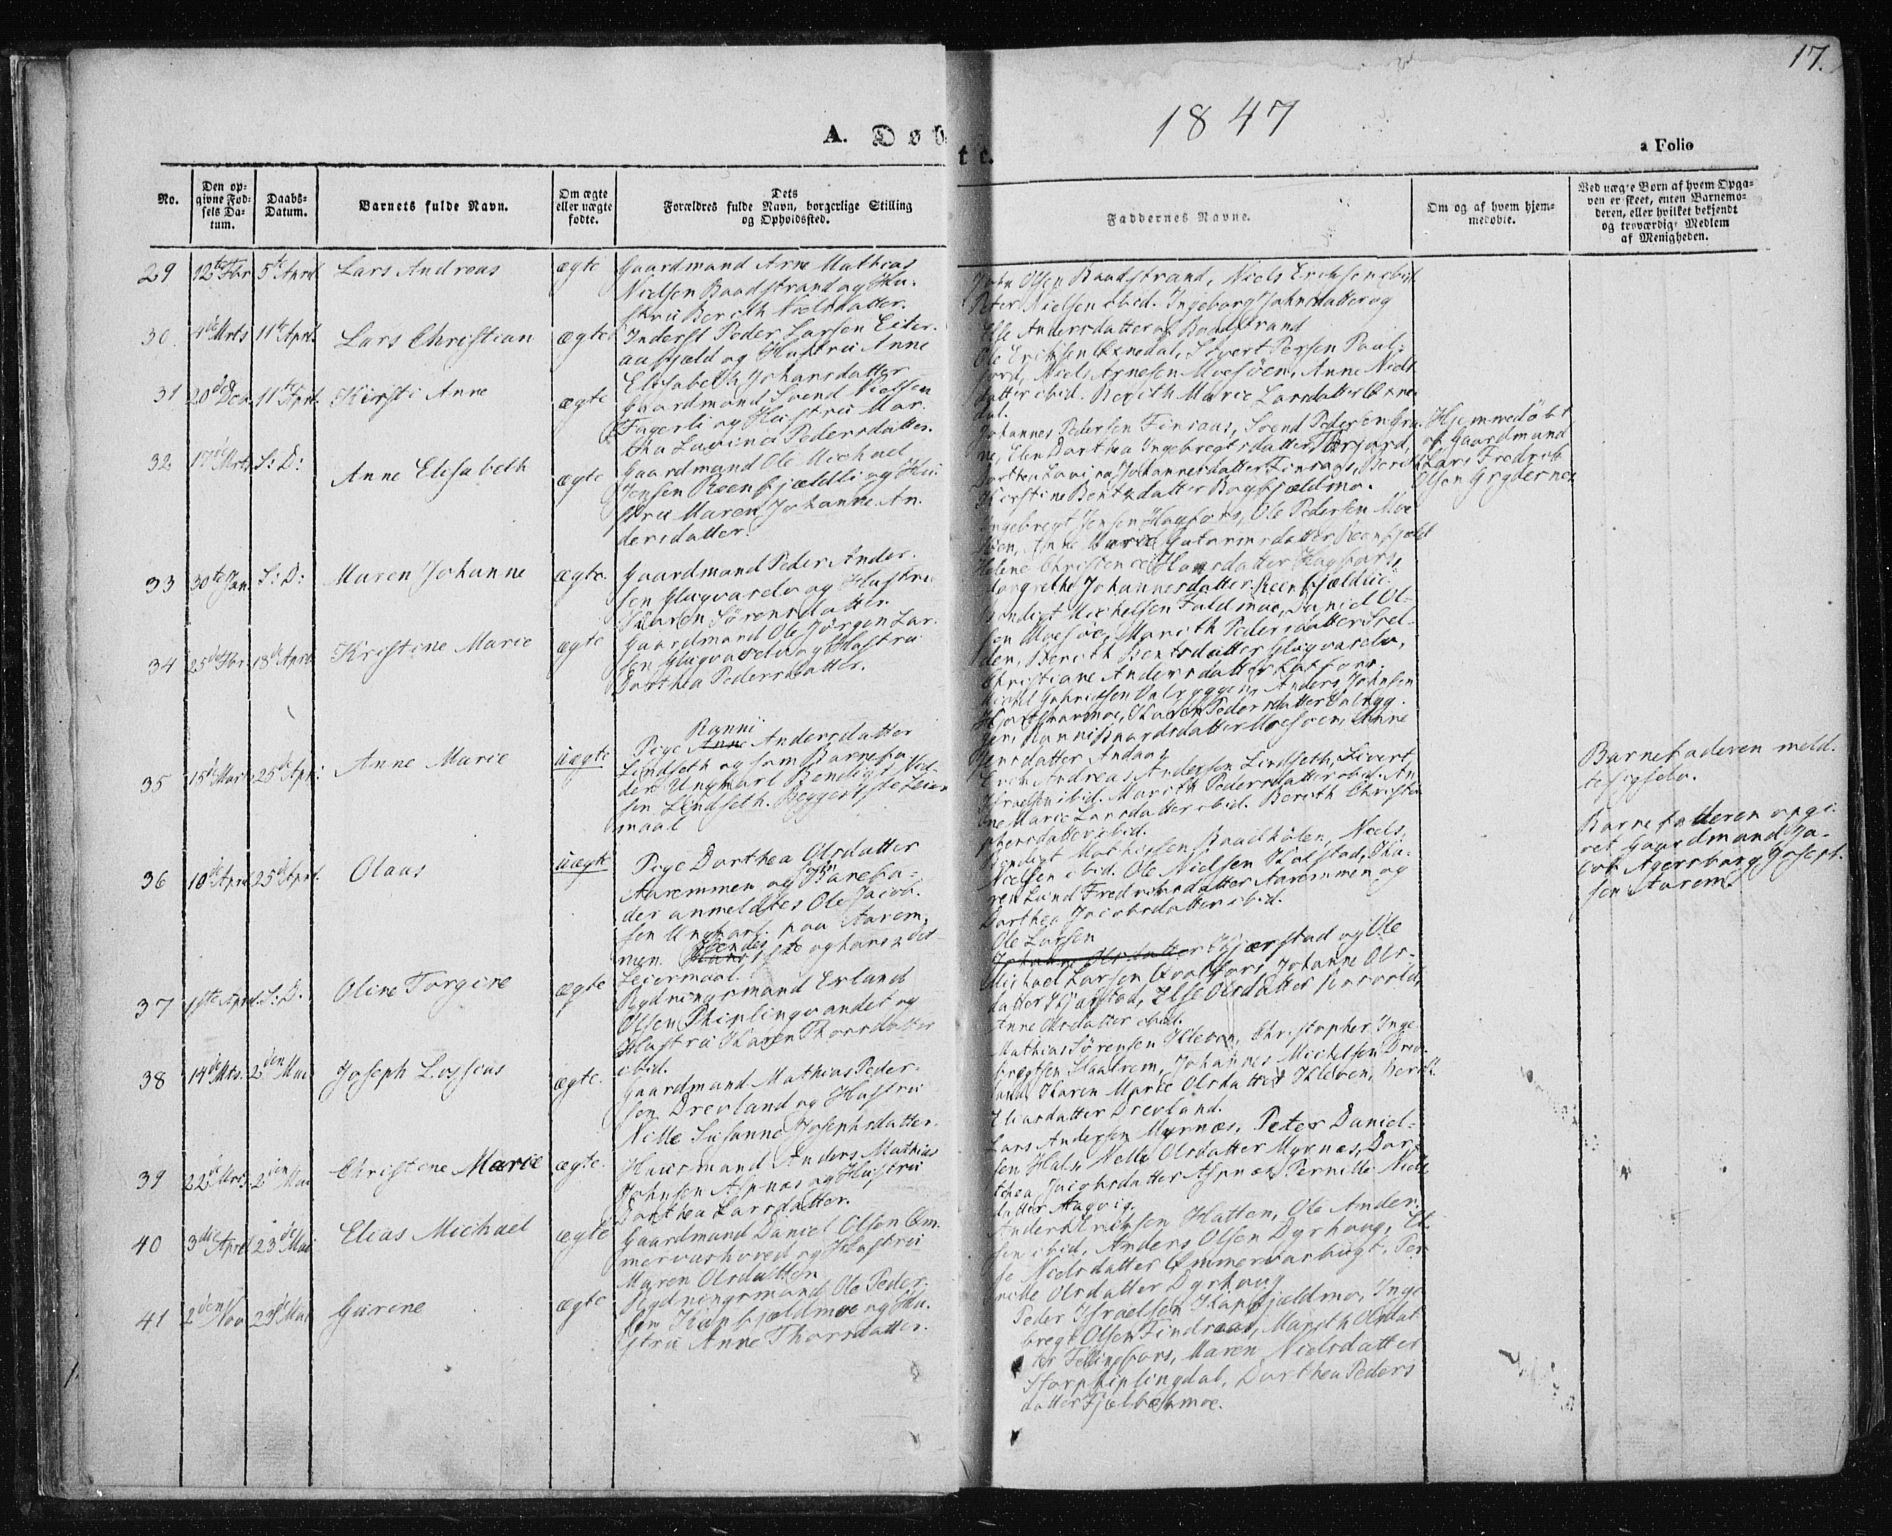 17.
1847
A. Døbte.
a Folio
No.
Den op-
givne Fød-
sels Da-
tum.
Daabs-
Datum.
Barnets fulde Navn.
Om ægte
eller uægte
fødte.
Dets
Forældres fulde Navn, borgerlige Stilling
og Opholdssted.
Faddernes Navne.
Om og af hvem hjem-
medøbte.
Ved uægte Børn af hvem Opga-
ven er skeet, enten Barnemo-
deren, eller hvilket bekjendt
og troværdigt Medlem
af Menigheden.
29 12te Fbr 5te April Lars Andreas ægte
Gaardmand Arne Mathias
Nielsen Baadstrand og Hu-
stru Bereth Nielsdatter.
John Olsen Baadstrand, Niels Eriksen ibid
Peter Nielsen ibid. Ingeborg Johnsdatter og
Else Andersdatter af Baadstrand
30. 4de Mrts 11te Aprl. Lars Christian ægte
Inderst Peder Larsen Eiter-
aafjæld og Hustru Anne
Elisabeth Johansdatter
Ole Eriksen Sivert
Niels Arnesen Moesøen, Anne Niels
datter ibid. Bereth Marie Larsdatter
31 20de Dec. 11te Aprl. Kirsti Anne ægte
Gaardmand Svend Nielsen
Fagerli og Hustru Mar-
tha Lavina Pedersdatter.
Johannes Pedersen Finsaas, Svend Pedersen
ne, Elen Dorthea Ingebregtsdatter
Dorthea Lavina Johannesdatter Finsaas, Bereth
Kirstine Bentsdatter
Hjemmedøbt
af Gaardmand
Lars Fredrik
Olsen Grydernes.
32 Mrts S: D: Anne Elisabeth ægte
Gaardmand Ole Michael
Jensen Reenfjældli og Hu-
stru Maren Johanne An-
dersdatter.
Ingebregt Jensen Hagfors, Ole Pedersen Moe
søen, Anne Marie
Helene Christence Hansdatter Hagfors,
Margrethe Johannesdatter Reenfjældli.
33 30te Jan. S: D: Maren Johanne ægte
Gaardmand Peder Ander-
sen Glugvaselv og Hustru
Maren Sørensdatter.
Bendigt Michelsen Faldmoe, Daniel Ol-
sen Moesøe, Mareth Pedersdatter
den, Bereth Bentsdatter Glugvaselv,
Christiane Andersdatter
34 25de Fbr 18de April Kristine Marie ægte
Gaardmand Ole Jørgen Lar-
sen Glugvaselv og Hustru
Dorthea Pedersdatter.
Anders Johnsen
Karen Pedersdatter
Moesøen, Anne
Hansdatter
35 15de Marts 25de Apr. Anne Marie uægte
Ranni
Pige Anne Andersdatter
Lindseth og som Barnefa-
der Ungkarl Bendigt Niel-
sen Lindseth. Begges 1ste Leier
maal
Erik Andreas Andersen Lindseth, Sivert
Israelsen ibid. Mareth Pedersdatter ibid. An-
ne Marie Larsdatter ibid. Bereth Christo-
phersdatter ibid.
Barnefaderen meld-
te sig selv.
36 10de Apr. 25de Aprl. Olaus uægte
Pige Dorthea Olsdatter
Aaremmen og som Barnefa-
der anmeldtes Ole Jacob-
sen Ungkarl paa Aarem-
men. Hans Hendes 1ste og hans 2det
Leiermaal.
Bendigt Mathissen Baadholen, Niels
Nielsen ibid. Ole Nielsen Kolstad, Ka-
ren Lund Fredriksdatter Aaremmen og
Dorthea Jacobsdatter ibid.
Barnefaderen opgi-
vet Gaardmand Ja-
cob Agersborg Joseph-
sen Aarem.
37 1ste Aprl. S: D: Oline Torgine ægte
Rydningsmand Erland
Olsen Phiplingvandet og
Hustru Karen Thorsdatter
ibid.
Ole Larsen
Johanne Olsdatter Kjærstad og Ole
Michael Larsen Johanne Ols-
datter Kjærstad, Else Olsdatter
Anne Olsdatter ibid.
38 14de Mts. 2den Mai Joseph Lossius ægte
Gaardmand Mathias Peder-
sen Drevland og Hustru
Nille Susanna Josephsdatter.
Mathias Sørensen Kleven, Christopher Inge-
bregtsen Johannes Michelsen Drev-
land, Karen Marie Olsdatter Kleven, Bereth
Eliasdatter Drevland.
39 22de Mrts 2den Mai Christine Marie ægte
Huusmand Anders Mathias
Johnsen Aspnæs og Hustru
Dorthea Larsdatter.
Lars Andersen Myrnæs, Peter Daniel-
sen Hals, Nelle Olsdatter Myrnæs, Dor-
thea Jacobsdatter Aspnæs Pernille Niels
datter Aagvig.
40 3die April 23de Mai Elias Michael ægte
Gaardmand Daniel Olsen Øm-
mervashoved og Hustru
Maren Olsdatter
Anders Eriksen Hatten, Ole Ander-
sen ibid, Anders Olsen Dyrhaug, El-
se Nielsdatter Ømmervasbugt, Per-
nille Olsdatter Dyrhaug
41 2den Nov 23de Mai Gurine ægte
Rydningsmand Ole Peder-
sen Kapfjældmoe og Hu-
stru Anne Thorsdatter.
Peder Israelsen Kapfjældmo, Inge
bregt Olsen Findraas, Mareth Olsdat
ter Fellingfors, Maren Nielsdatter
Storphiplingdal, Dorthea Peders
datter Fjælbækmoe.